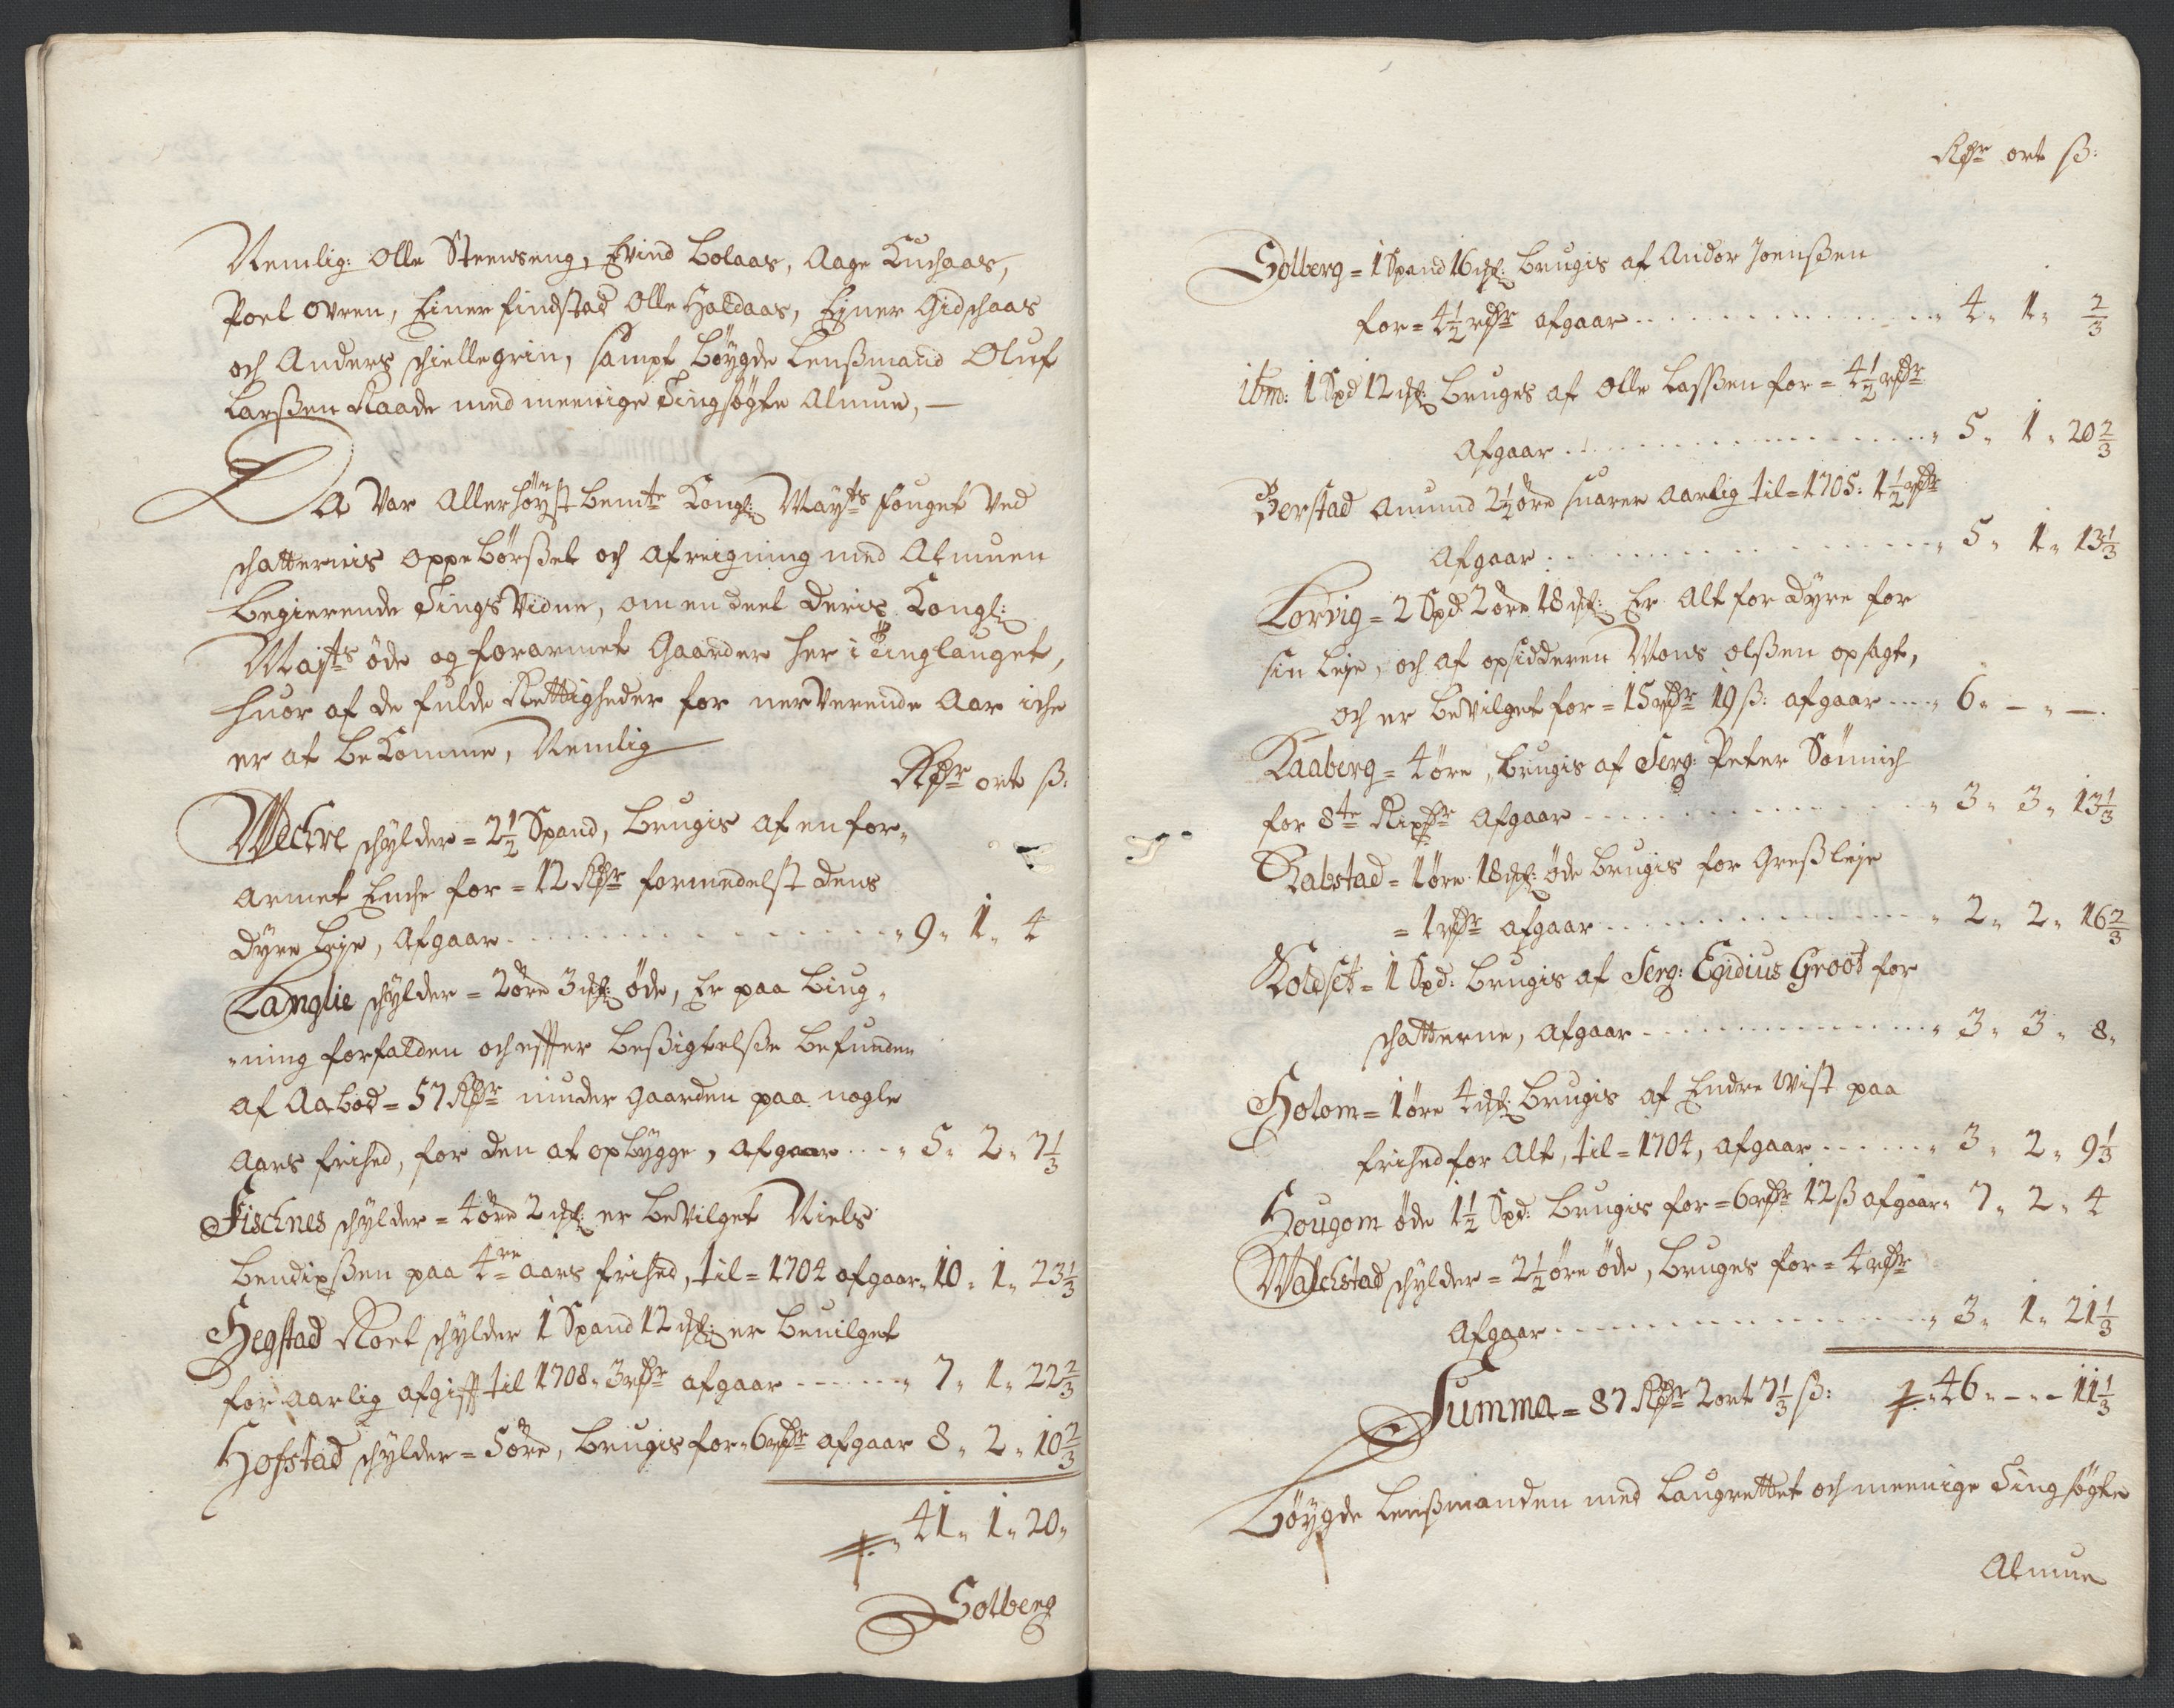 Nemlig: Olle Steenseng, Evind Bolaas, Aage Kuchaas,
Poel Ovren, Einer Findstad Olle Haldaas, Ejner Gidschaas
och Anders schiellegrin, sampt Böygde Lensßmand Oluf
Larßen Raade med meenige Tingsøgte Almue, —
Da Var Allerhöyst bemte Kongl: Mayts Fouget Ved
schatternis oppebörßel och afreigning med Almuen
begierende Tings Vidne, om en deel deris Kongl:
Mayts øde og forarmet Gaarder her i Tinglauget,
huor af de fulde Rettigheder for nerverende Aar iche
er at bekomme, Nemlig
Rdr ort ß:
Wechre schylder = 2½ Spand, brugis af en for„
armet Enche for = 12 Rdr formedelst dens
dyre leje, Afgaar „ 9„ 1„ 4
Langlie schylder = 2 øre 3 mk: øde, Er paa biug„
„ning forfalden och effter beßigtelße befunden
af Aabod = 57 Rdr under gaarden paa nogle
Aars frihed, for den at opbygge, afgaar „ 5„ 2„ 7⅓
Fischnes schylder = 4 øre 2 mk: er bevilget Niels
bendixßen paa 4re aars frihed, til = 1704 afgaar „ 10„ 1„ 23⅓
Hegstad Roel schylder 1 Spand 12 mk: er bevilget
for aarlig afgifft til 1708„ 3 rdr afgaar „ 7„ 1„ 22⅔
Hofstad schylder = 5 øre, brugis for „ 6 rdr afgaar 8„ 2„ 10⅔
„ 41„ 1„ 20„
Solberg
Rdr ort ß:
Solberg = 1 Spand 16 mk: brugis af Andor Joenßen
for = 4½ rdr afgaar „ 4„ 1„ ⅔
ibm: 1 Spd 12 mk: bruges af Olle Lassßen for = 4½ rdr
Afgaar „ 5„ 1„ 20⅔
Berstad Amund 2½ øre suarer Aarlig til = 1705: 1½ rdr
Afgaar „ 5„ 1„ 13⅓
Lorvig = 2 Spd: 2 øre 18 mk: Er Alt for dyre for
sin leje, och af opsidderen Mons olßen opsagt,
och er bevilget for = 15 rdr 19 ß: afgaar „ 6„ — „ —
Kaaberg = 4 øre, brugis af Serg: Peter Sönnich
for 8te Rixdr Afgaar „ 3„ 3„ 13⅓
Rabstad = 1 øre 18 mk: øde brugis for Greßleje
= 1 rdr afgaar „ 2„ 2„ 16⅔
Koldset = 1 Spd: brugis af Serg: Egidius Groot for
schatterne, Afgaar „ 3„ 3„ 8„
Holom = 1 øre 4 mk: brugis af Endre Wist paa
frihed for Alt, til = 1704, afgaar „ 3„ 2„ 9⅓
Hougom øde 1½ Spd: brugis for = 6 rdr 12 ß afgaar „ 7„ 2„ 4
Walchstad schylder = 2½ øre øde, bruges for = 4 rdr
Afgaar „ 3„ 1„ 21⅓
Summa = 87 Rdr 2 ort 7⅓ ß: „ 46„ — „ 11⅓
Böygde Lensßmanden med Laugrettet och meenige Tingsøgte
Almue